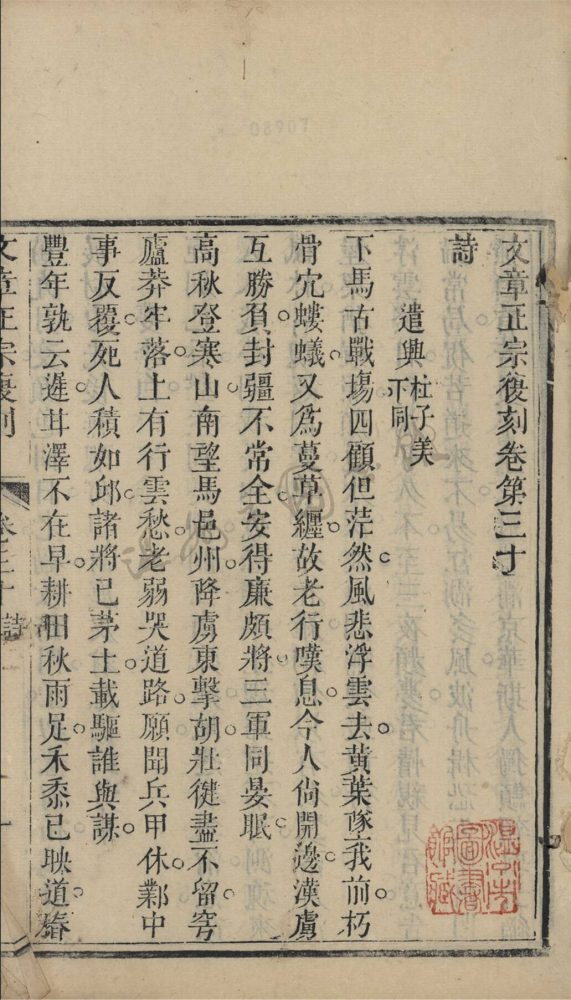 文章正宗復刻卷第三十
詩
遣興杜子美下同
下馬古戰場四顧但茫然風悲浮雲去黃葉墜我前朽
骨穴螻蟻又為蔓草纏故老行嘆息今人尚開邊漢虜
互勝負封疆不常全安得廉頗將三軍同晏眠
高秋登寒山南望馬邑州降虜東擊胡壯健盡不留穹
廬莽牢落上有行雲愁老弱哭道路願聞兵甲休鄴中
事反覆死人積如邱諸將已茅土載驅誰與謀
豐年孰云遲甘澤不在早耕田秋雨足禾黍已映道春
文章正宗復刻
卷三十
詩
08907